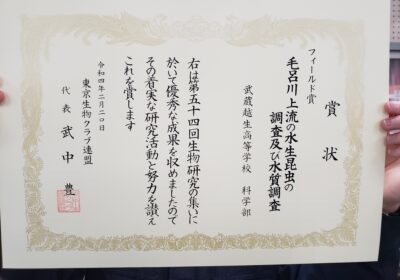 賞状
フィールド賞
毛呂川上流の水生昆虫の
調査及び水質調査
武蔵越生高等学校 科学部
右は第五十四回生物研究の集いに
於いて優秀な成果を収めましたので
その着実な研究活動と努力を讃え
これを賞します
令和四年二月二〇日
東京生物クラブ連盟
代表 武中 豊